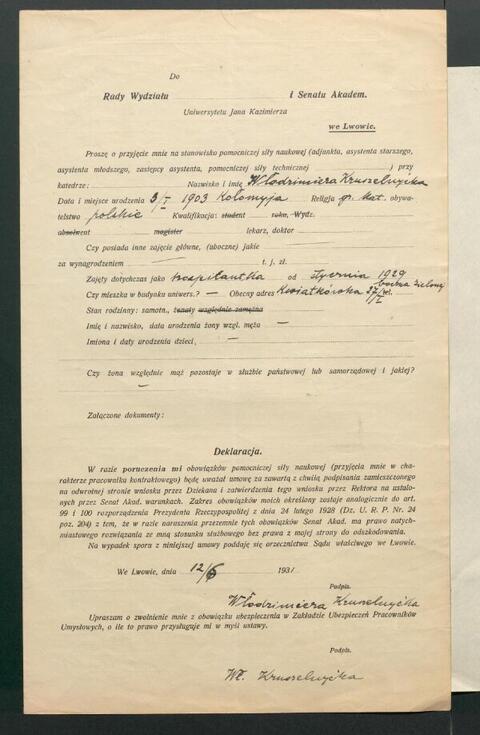 Do
Rady Wydziału i Senatu Akadem.
Uniwersytetu Jana Kazimierza
we Lwowie.
Proszę o przyjęcie mnie na stanowisko pomocniczej siły naukowej (adjunkta, asystenta starszego,
asystenta młodszego, zastępcy asystenta, pomocniczej siły technicznej) przy
katedrze: Nazwisko i imię Włodzimiera Kruszelnyćka
Data i miejsce urodzenia 3/I 1903 Kołomyja Religja gr. kat. obywa-
telstwo polskie Kwalifikacja: student rokn. Wydz.
absolwent magister lekarz, doktor
Czy posiada inne zajęcie główne, (uboczne) jakie
za wynagrodzeniem — t. j. zł.
Zajęty dotychczas jako hospitantka od stycznia 1929
Czy mieszka w budynku uniwers.? — Obecny adres Kwiatkówka 37/I
boczna Zielonej
Stan rodzinny: samotn., żonaty względnie zamężna
Imię i nazwisko, data urodzenia żony wzgl. męża —
Imiona i daty urodzenia dzieci, —
Czy żona względnie mąż pozostaje w służbie państwowej lub samorządowej i jakiej?
—
Załączone dokumenty:
Deklaracja.
W razie poruczenia mi obowiązków pomocniczej siły naukowej (przyjęcia mnie w cha-
rakterze pracownika kontraktowego) będę uważał umowę za zawartą z chwilą podpisania zamieszczonego
na odwrotnej stronie wniosku przez Dziekana i zatwierdzenia tego wniosku przez Rektora na ustalo-
nych przez Senat Akad. warunkach. Zakres obowiązków moich określony zostaje analogicznie do art.
99 i 100 rozporządzenia Prezydenta Rzeczypospolitej z dnia 24 lutego 1928 (Dz. U. R. P. Nr. 24
poz. 204) z tem, że w razie naruszenia przezemnie tych obowiązków Senat Akad. ma prawo natych-
miastowego rozwiązania ze mną stosunku służbowego bez prawa z mojej strony do odszkodowania.
Na wypadek spora z niniejszej umowy poddaję się orzecznictwu Sądu właściwego we Lwowie.
We Lwowie, dnia 12/6 1931
Podpis.
Włodzimiera Kruszelnyćka
Upraszam o zwolnienie mnie z obowiązku ubezpieczenia w Zakładzie Ubezpieczeń Pracowników
Umysłowych, o ile to prawo przysługuje mi w myśl ustawy.
Podpis.
Wł. Kruszelnyćka